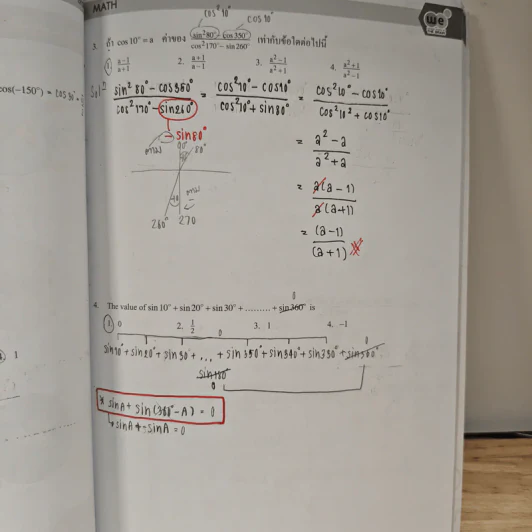 MATH
We
cos²10°
cos10°
3. ถ้า cos 10° = a ค่าของ (sin²80° − cos 350°)/(cos²170° − sin260°) เท่ากับข้อใดต่อไปนี้
1. (a−1)/(a+1) 2. (a+1)/(a−1) 3. (a²−1)/(a²+1) 4. (a²+1)/(a²−1)
cos(−150°) = cos
(sin²80° − cos350°)/(cos²170° − sin260°) = (cos²10° − cos10°)/(cos²10° + sin80°) = (cos²10° − cos10°)/(cos²10° + cos10°)
− sin80°
90°
80°
= (a² − a)/(a² + a)
= a(a−1)/a(a+1)
260° 270
= (a−1)/(a+1)
0
4. The value of sin 10° + sin 20° + sin 30° + ......... + sin 360° is
1. 0 2. 1/2 3. 1 4. −1
1
0 0
sin10° + sin20° + sin30° + ... + sin350° + sin340° + sin330° + sin360°
sin180°
0
* sinA + sin(360° − A) = 0
↳ sinA + −sinA = 0